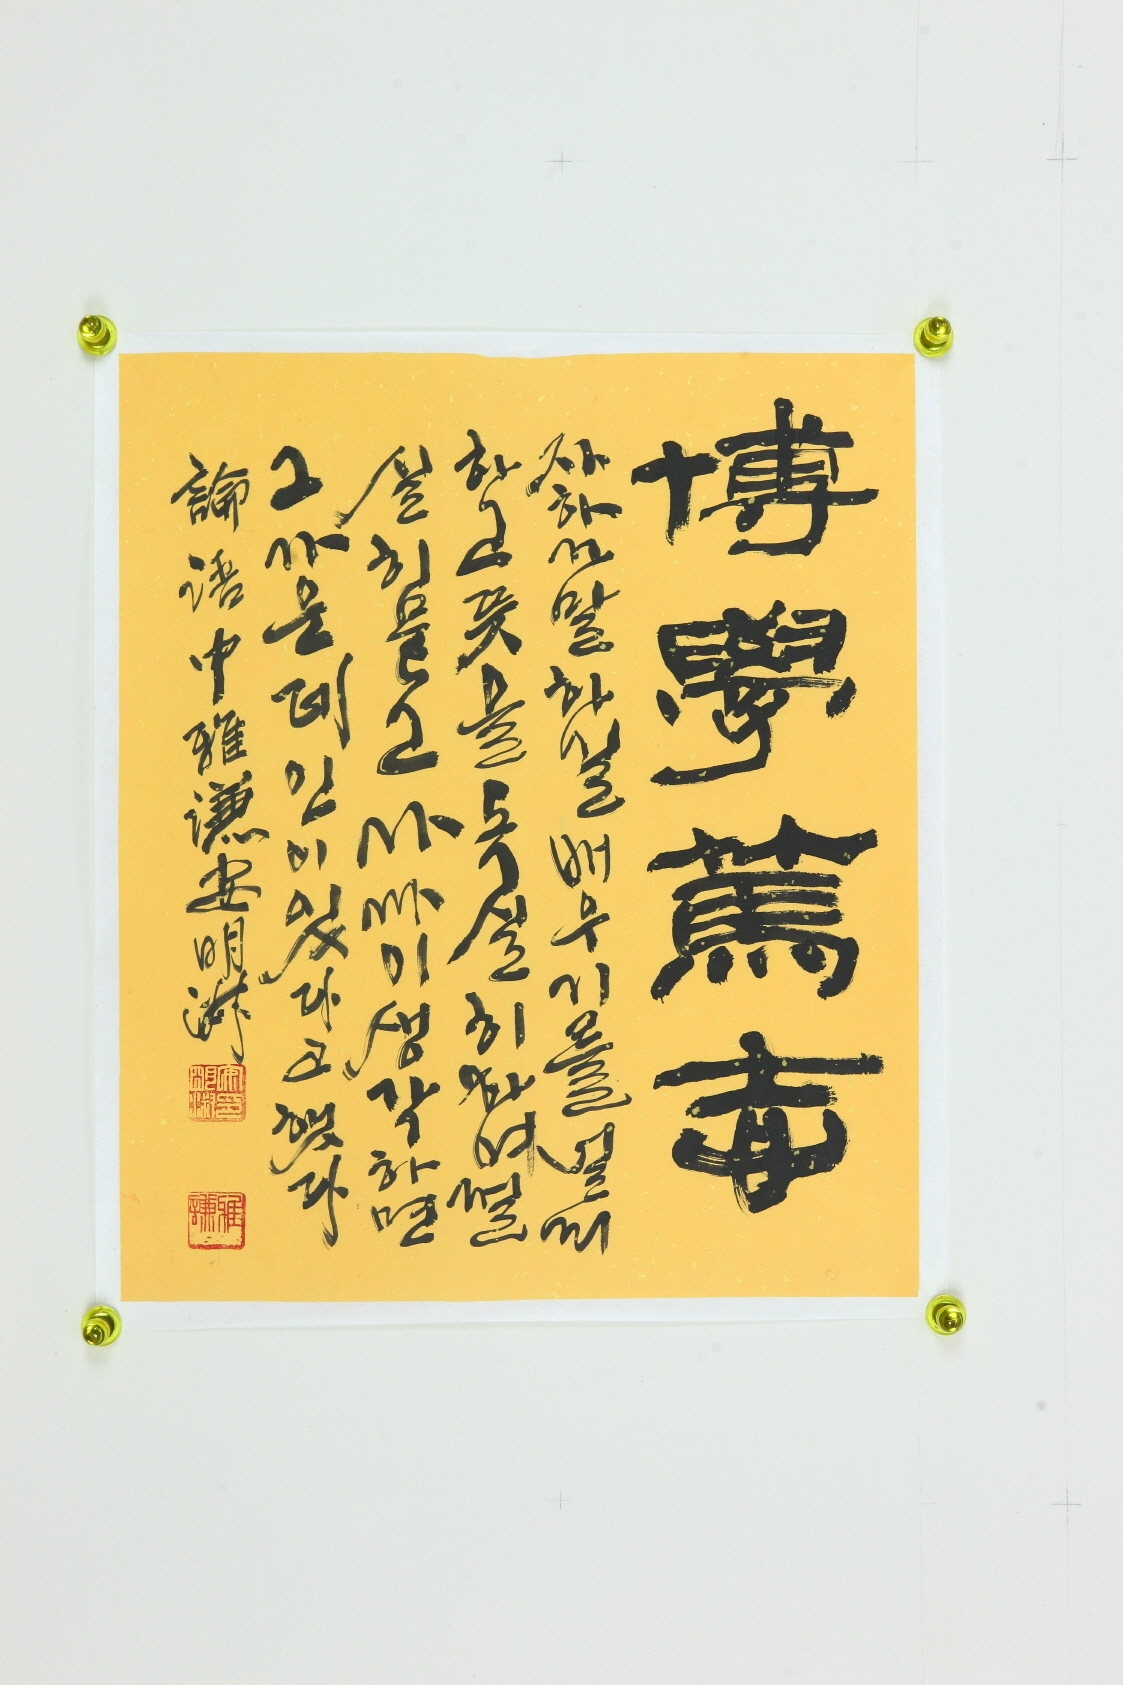 博學篤志
자하가말하길배우기를널리
하고뜻을독실히하며절
실히묻고가까이생각하면
그가운데인이있다고했다
論語中雅謙安明淑
安印明淑
雅謙